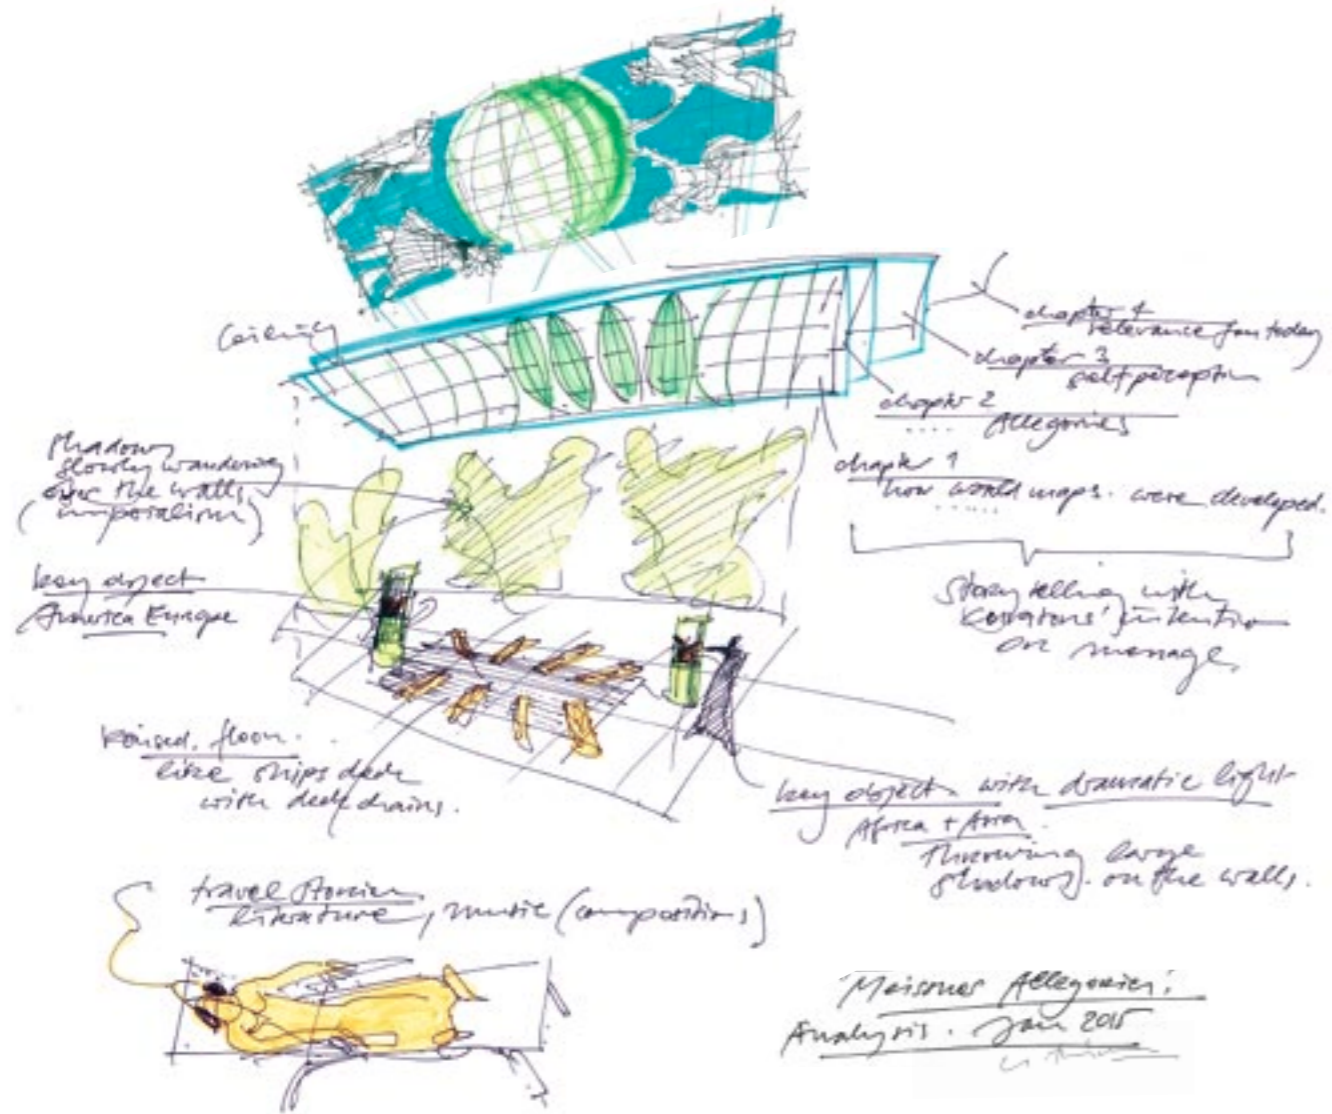 Ceiling
chapter 4
relevance for today
chapter 3
self perception
chapter 2
Allegories
chapter 1
how world maps were developed.
shadows
slowly wandering
over the walls
(imperialism)
key object
America Europe
storytelling with
intention
or message.
Raised floor
like ships deck
with deck chairs.
key object with dramatic light
Africa + Asia
throwing large
shadows on the walls.
travel stories
literature, music (compositions)
Meissner Allegorien:
Analysis. Jan 2015